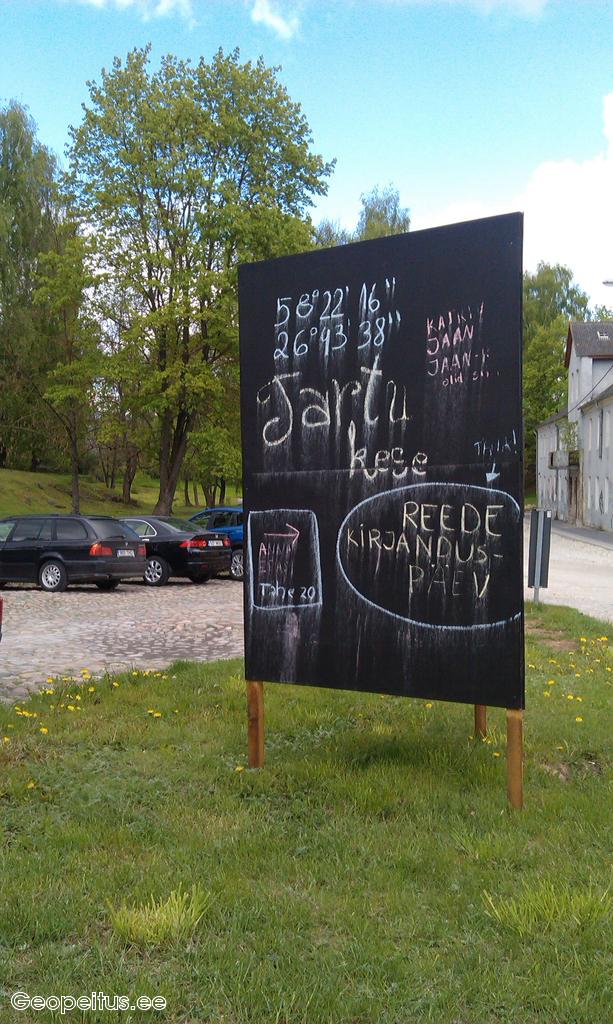 58°22'16"
26°43'38"
Tartu
kese
KALLI
JAAN
JAAN-i
old
REEDE
KIRJANDUS-
PÄEV
A
Tähe 20
Geopeitus.ee